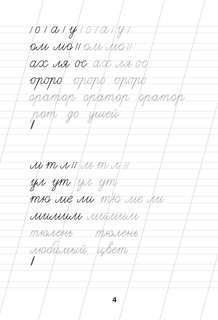 / о / а / у / о / а / у /
ом мо // ом мо //
ах ля ос ах ля ос
ороро ороро ороро
оратор оратор оратор
рот до ушей
/
м т л // м т л //
ул ут ул ут
тю ме ли тю ме ли
мишим мишим
тюлень тюлень
любимый цвет
/
4